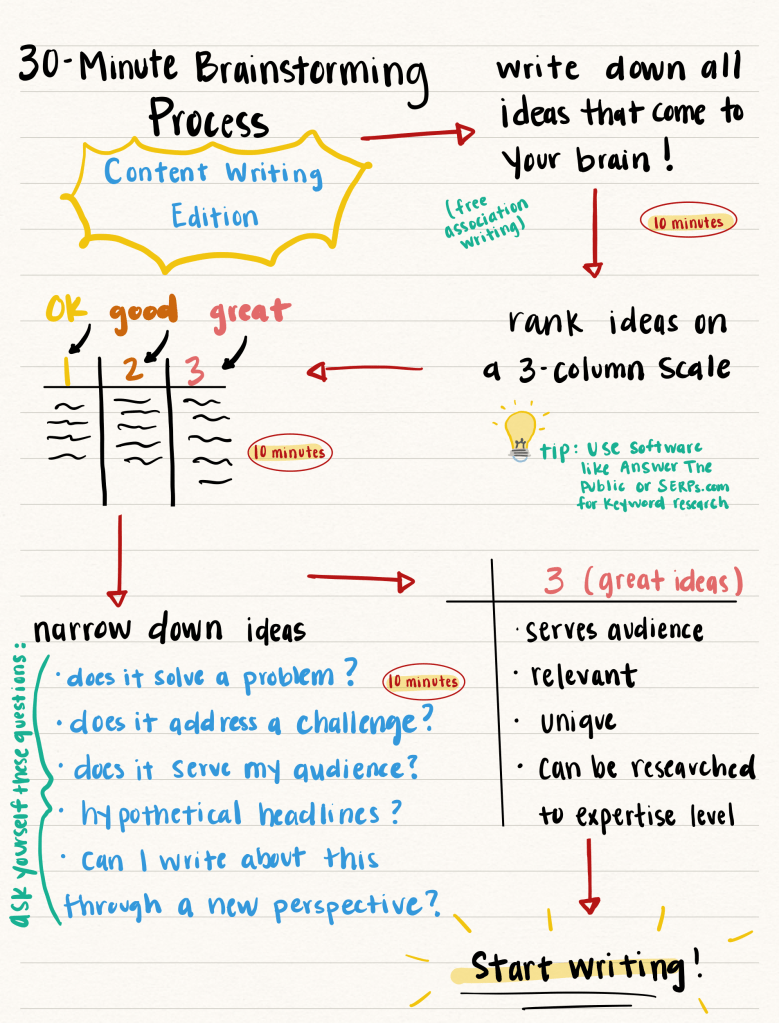 30-Minute Brainstorming
Process
Content Writing
Edition
write down all
ideas that come to
your brain!
(free
association
writing)
10 minutes
rank ideas on
a 3-column scale
tip: use software
like Answer The
Public or SERPs.com
for keyword research
OK good great
1 2 3
10 minutes
narrow down ideas
ask yourself these questions:
· does it solve a problem?
· does it address a challenge?
· does it serve my audience?
· hypothetical headlines?
· can I write about this
through a new perspective?
10 minutes
3 (great ideas)
· serves audience
· relevant
· unique
· can be researched
to expertise level
Start writing!